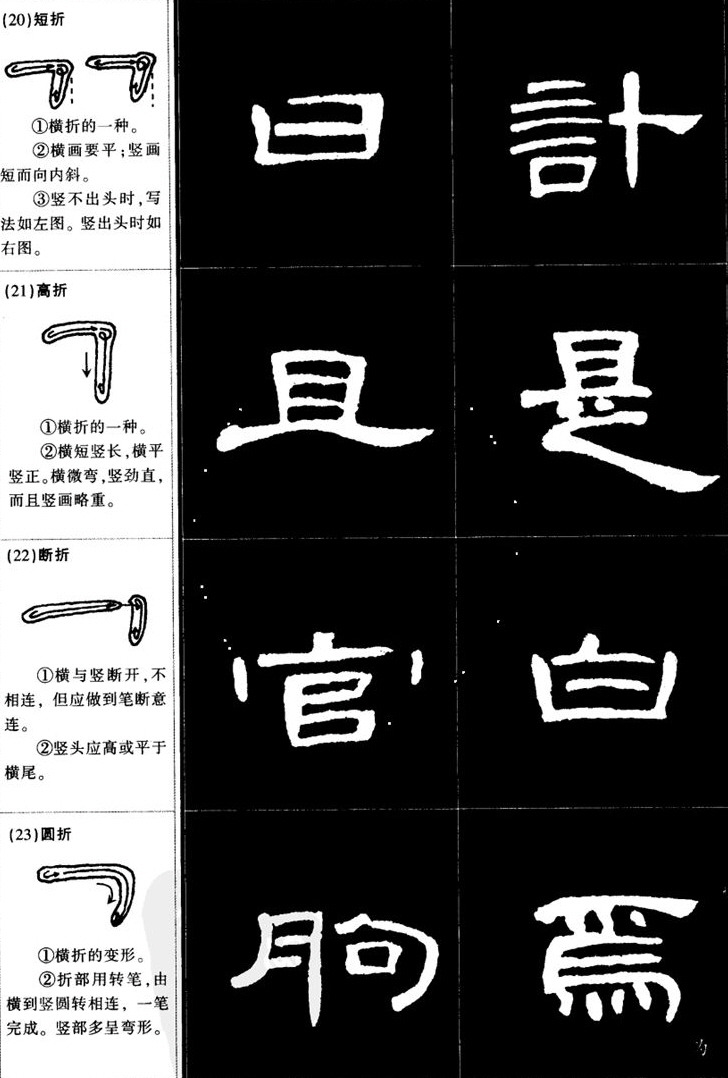 (20)短折
①横折的一种。
②横画要平；竖画
短而向内斜。
③竖不出头时，写
法如左图。竖出头时如
右图。
曰 計
(21)高折
①横折的一种。
②横短竖长，横平
竖正。横微弯，竖劲直，
而且竖画略重。
且 是
(22)断折
①横与竖断开，不
相连，但应做到笔断意
连。
②竖头应高或平于
横尾。
官 白
(23)圆折
①横折的变形。
②折部用转笔，由
横到竖圆转相连，一笔
完成。竖部多呈弯形。
朐 焉